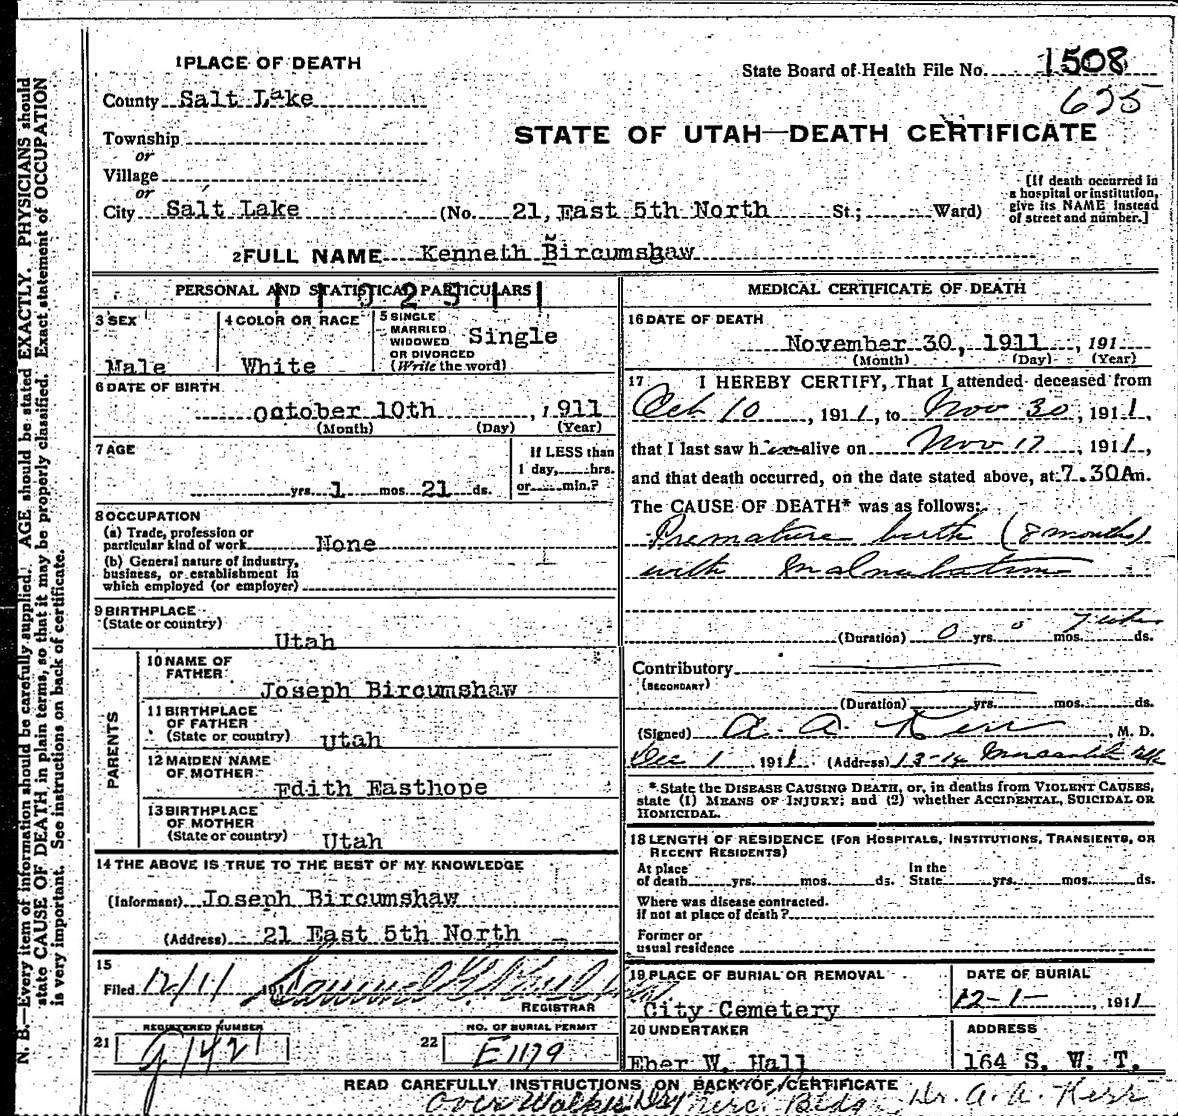 1 PLACE OF DEATH
State Board of Health File No. 1508
County Salt Lake
635
Township
STATE OF UTAH—DEATH CERTIFICATE
or
Village
or
[If death occurred in
a hospital or institution,
give its NAME instead
of street and number.]
City Salt Lake (No. 21, East 5th North St.; Ward)
2 FULL NAME Kenneth Bircumshaw
PERSONAL AND STATISTICAL PARTICULARS
3 SEX
Male
4 COLOR OR RACE
White
5 SINGLE
MARRIED
WIDOWED
OR DIVORCED
(Write the word)
Single
6 DATE OF BIRTH
October 10th, 1911
(Month) (Day) (Year)
7 AGE
yrs. 1 mos. 21 ds.
If LESS than
1 day, hrs.
or min.?
8 OCCUPATION
(a) Trade, profession or
particular kind of work None
(b) General nature of industry,
business, or establishment in
which employed (or employer)
9 BIRTHPLACE
(State or country)
Utah
PARENTS
10 NAME OF
FATHER
Joseph Bircumshaw
11 BIRTHPLACE
OF FATHER
(State or country) Utah
12 MAIDEN NAME
OF MOTHER
Edith Easthope
13 BIRTHPLACE
OF MOTHER
(State or country) Utah
14 THE ABOVE IS TRUE TO THE BEST OF MY KNOWLEDGE
(Informant) Joseph Bircumshaw
(Address) 21 East 5th North
15
Filed 12/1/ 191
REGISTRAR
21 REGISTERED NUMBER
1421
22 NO. OF BURIAL PERMIT
E1179
MEDICAL CERTIFICATE OF DEATH
16 DATE OF DEATH
November 30, 1911, 191
(Month) (Day) (Year)
17 I HEREBY CERTIFY, That I attended deceased from
Oct 10, 1911, to Nov 30, 1911,
that I last saw h alive on Nov 17, 1911,
and that death occurred, on the date stated above, at 7.30 Am.
The CAUSE OF DEATH* was as follows:
Premature birth (8 months)
with Malnutrition
(Duration) 0 yrs. 0 mos. ds.
Contributory
(SECONDARY)
(Duration) yrs. mos. ds.
(Signed) A. A. Kerr, M. D.
Dec 1, 1911 (Address) 13-14
* State the DISEASE CAUSING DEATH, or, in deaths from VIOLENT CAUSES,
state (1) MEANS OF INJURY; and (2) whether ACCIDENTAL, SUICIDAL OR
HOMICIDAL.
18 LENGTH OF RESIDENCE (FOR HOSPITALS, INSTITUTIONS, TRANSIENTS, OR
RECENT RESIDENTS)
At place
of death yrs. mos. ds.
In the
State yrs. mos. ds.
Where was disease contracted.
if not at place of death?
Former or
usual residence
19 PLACE OF BURIAL OR REMOVAL
City Cemetery
DATE OF BURIAL
12-1-, 1911
20 UNDERTAKER
Eber W. Hall
ADDRESS
164 S. W. T.
READ CAREFULLY INSTRUCTIONS ON BACK OF CERTIFICATE
Over Walker Dry Merc. Bldg. Dr. A. A. Kerr
N. B.—Every item of information should be carefully supplied. AGE should be stated EXACTLY. PHYSICIANS should
state CAUSE OF DEATH in plain terms, so that it may be properly classified. Exact statement of OCCUPATION
is very important. See instructions on back of certificate.